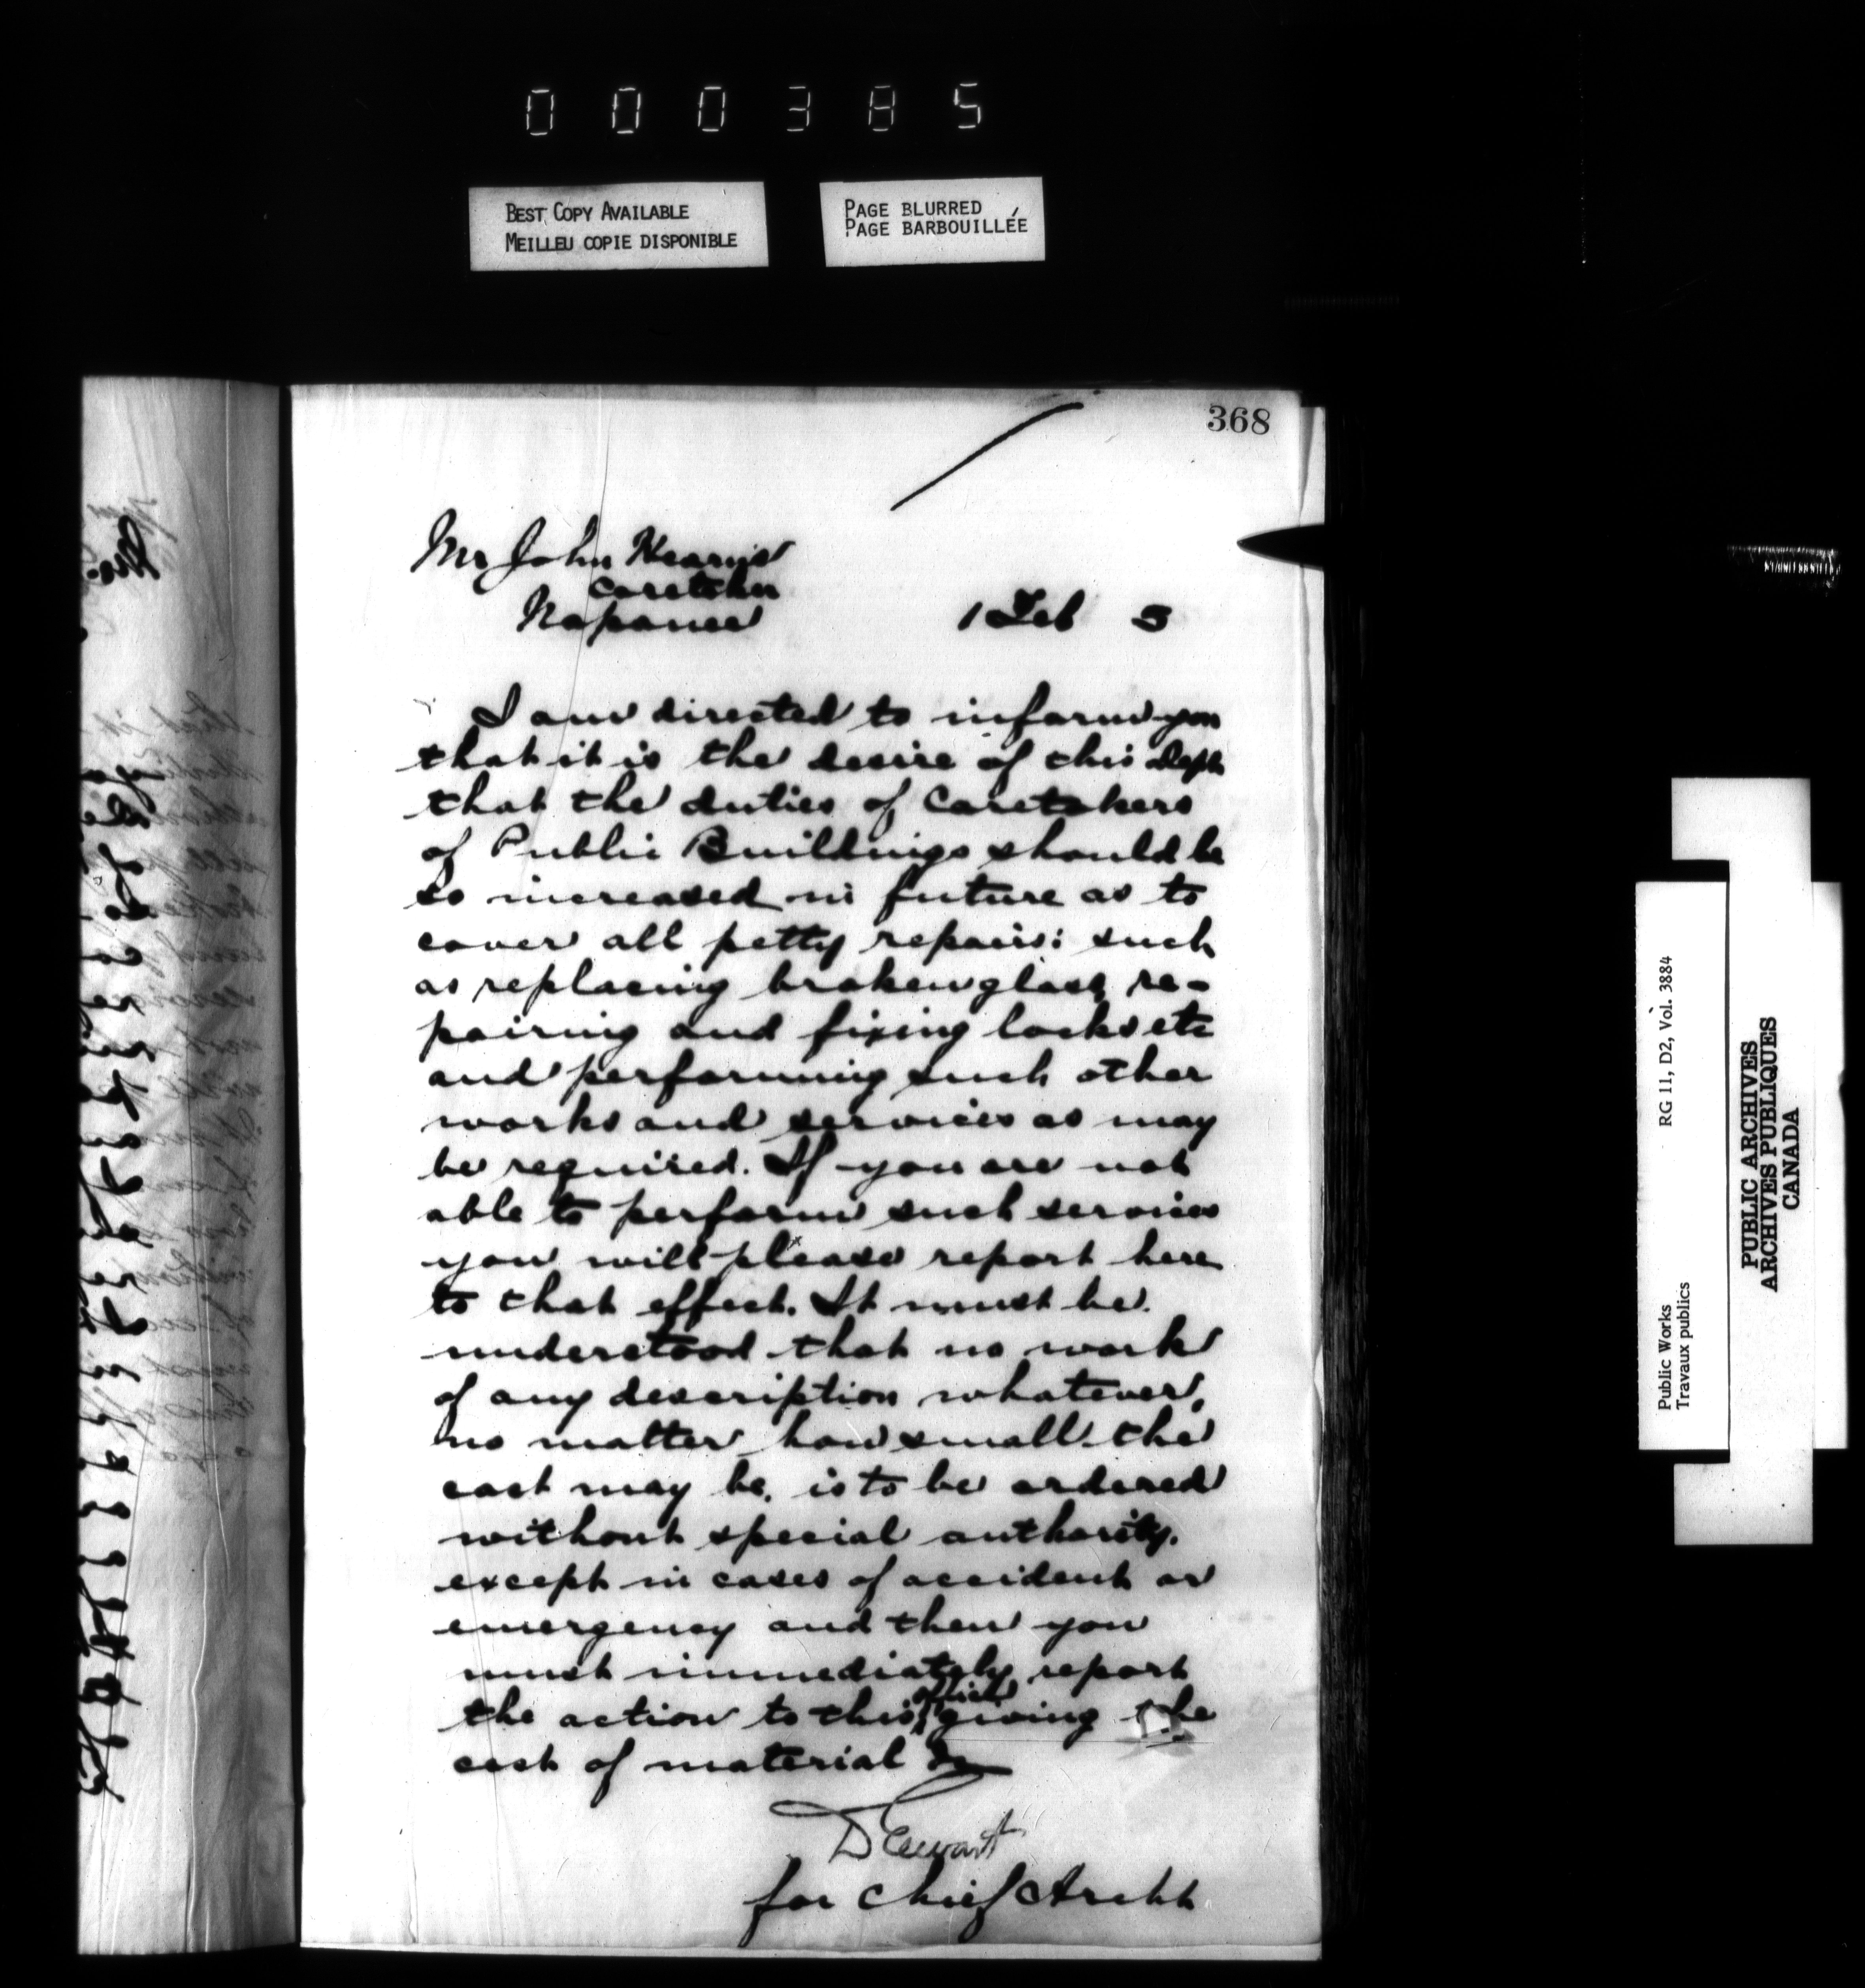 000385
BEST COPY AVAILABLE
MEILLEU COPIE DISPONIBLE
PAGE BLURRED
PAGE BARBOUILLÉE
368
Mr John
Caretaker
Napanee
1 Feb 3
I am directed to inform you
that it is the desire of this Dept
that the duties of Caretakers
of Public Buildings should be
so increased in future as to
cover all petty repairs: such
as replacing broken glass, re-
pairing and fixing locks etc
and performing such other
works and services as may
be required. If you are not
able to perform such services
you will please report here
to that effect. It must be
understood that no work
of any description whatever,
no matter how small the
cost may be, is to be ordered
without special authority,
except in cases of accident or
emergency and then you
must immediately report
the action to this office giving the
cost of material &c
DEwart
for Chief Archt
Public Works
Travaux publics
RG 11, D2, Vol. 3884
PUBLIC ARCHIVES
ARCHIVES PUBLIQUES
CANADA